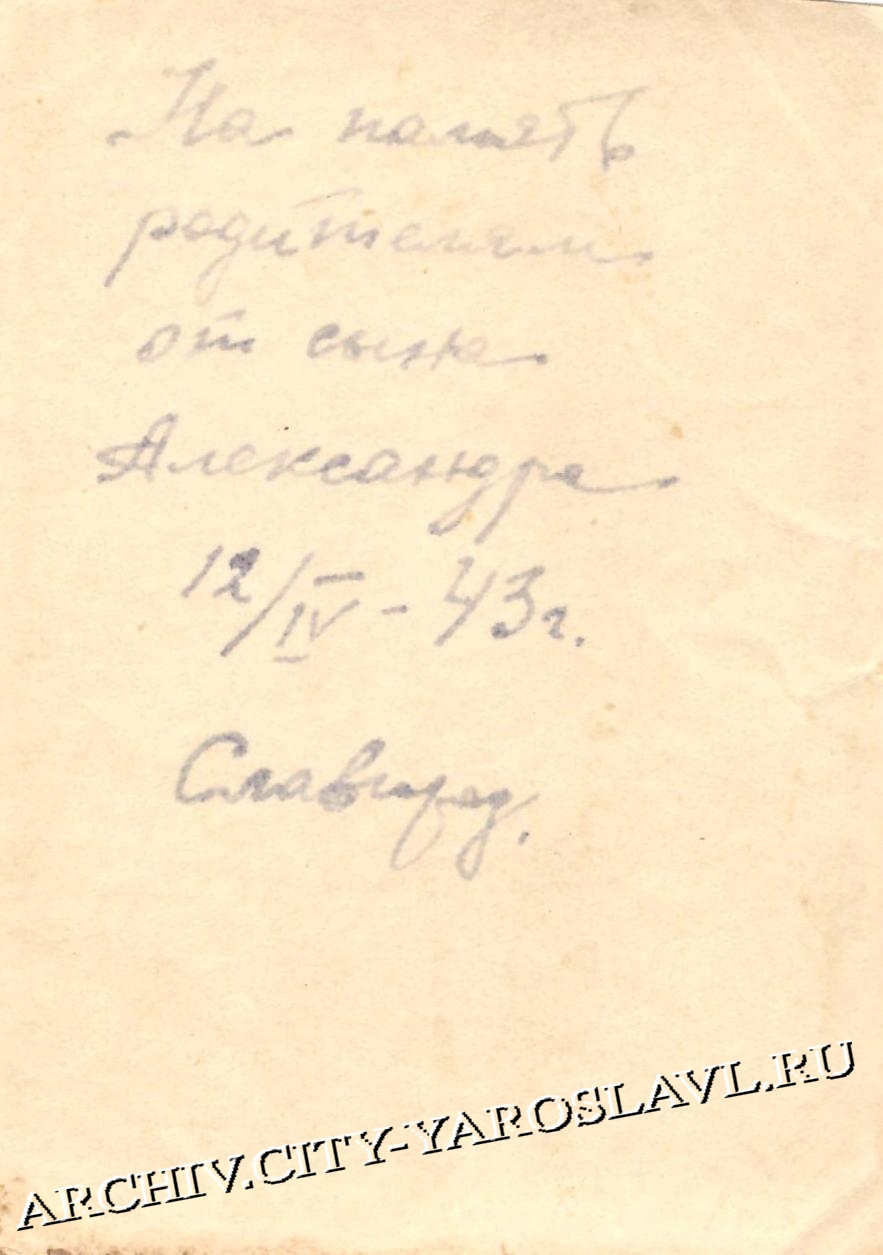 На память
родителям
от сына
Александра
12/IV - 43г.
Славгород.
ARCHIV.CITY-YAROSLAVL.RU